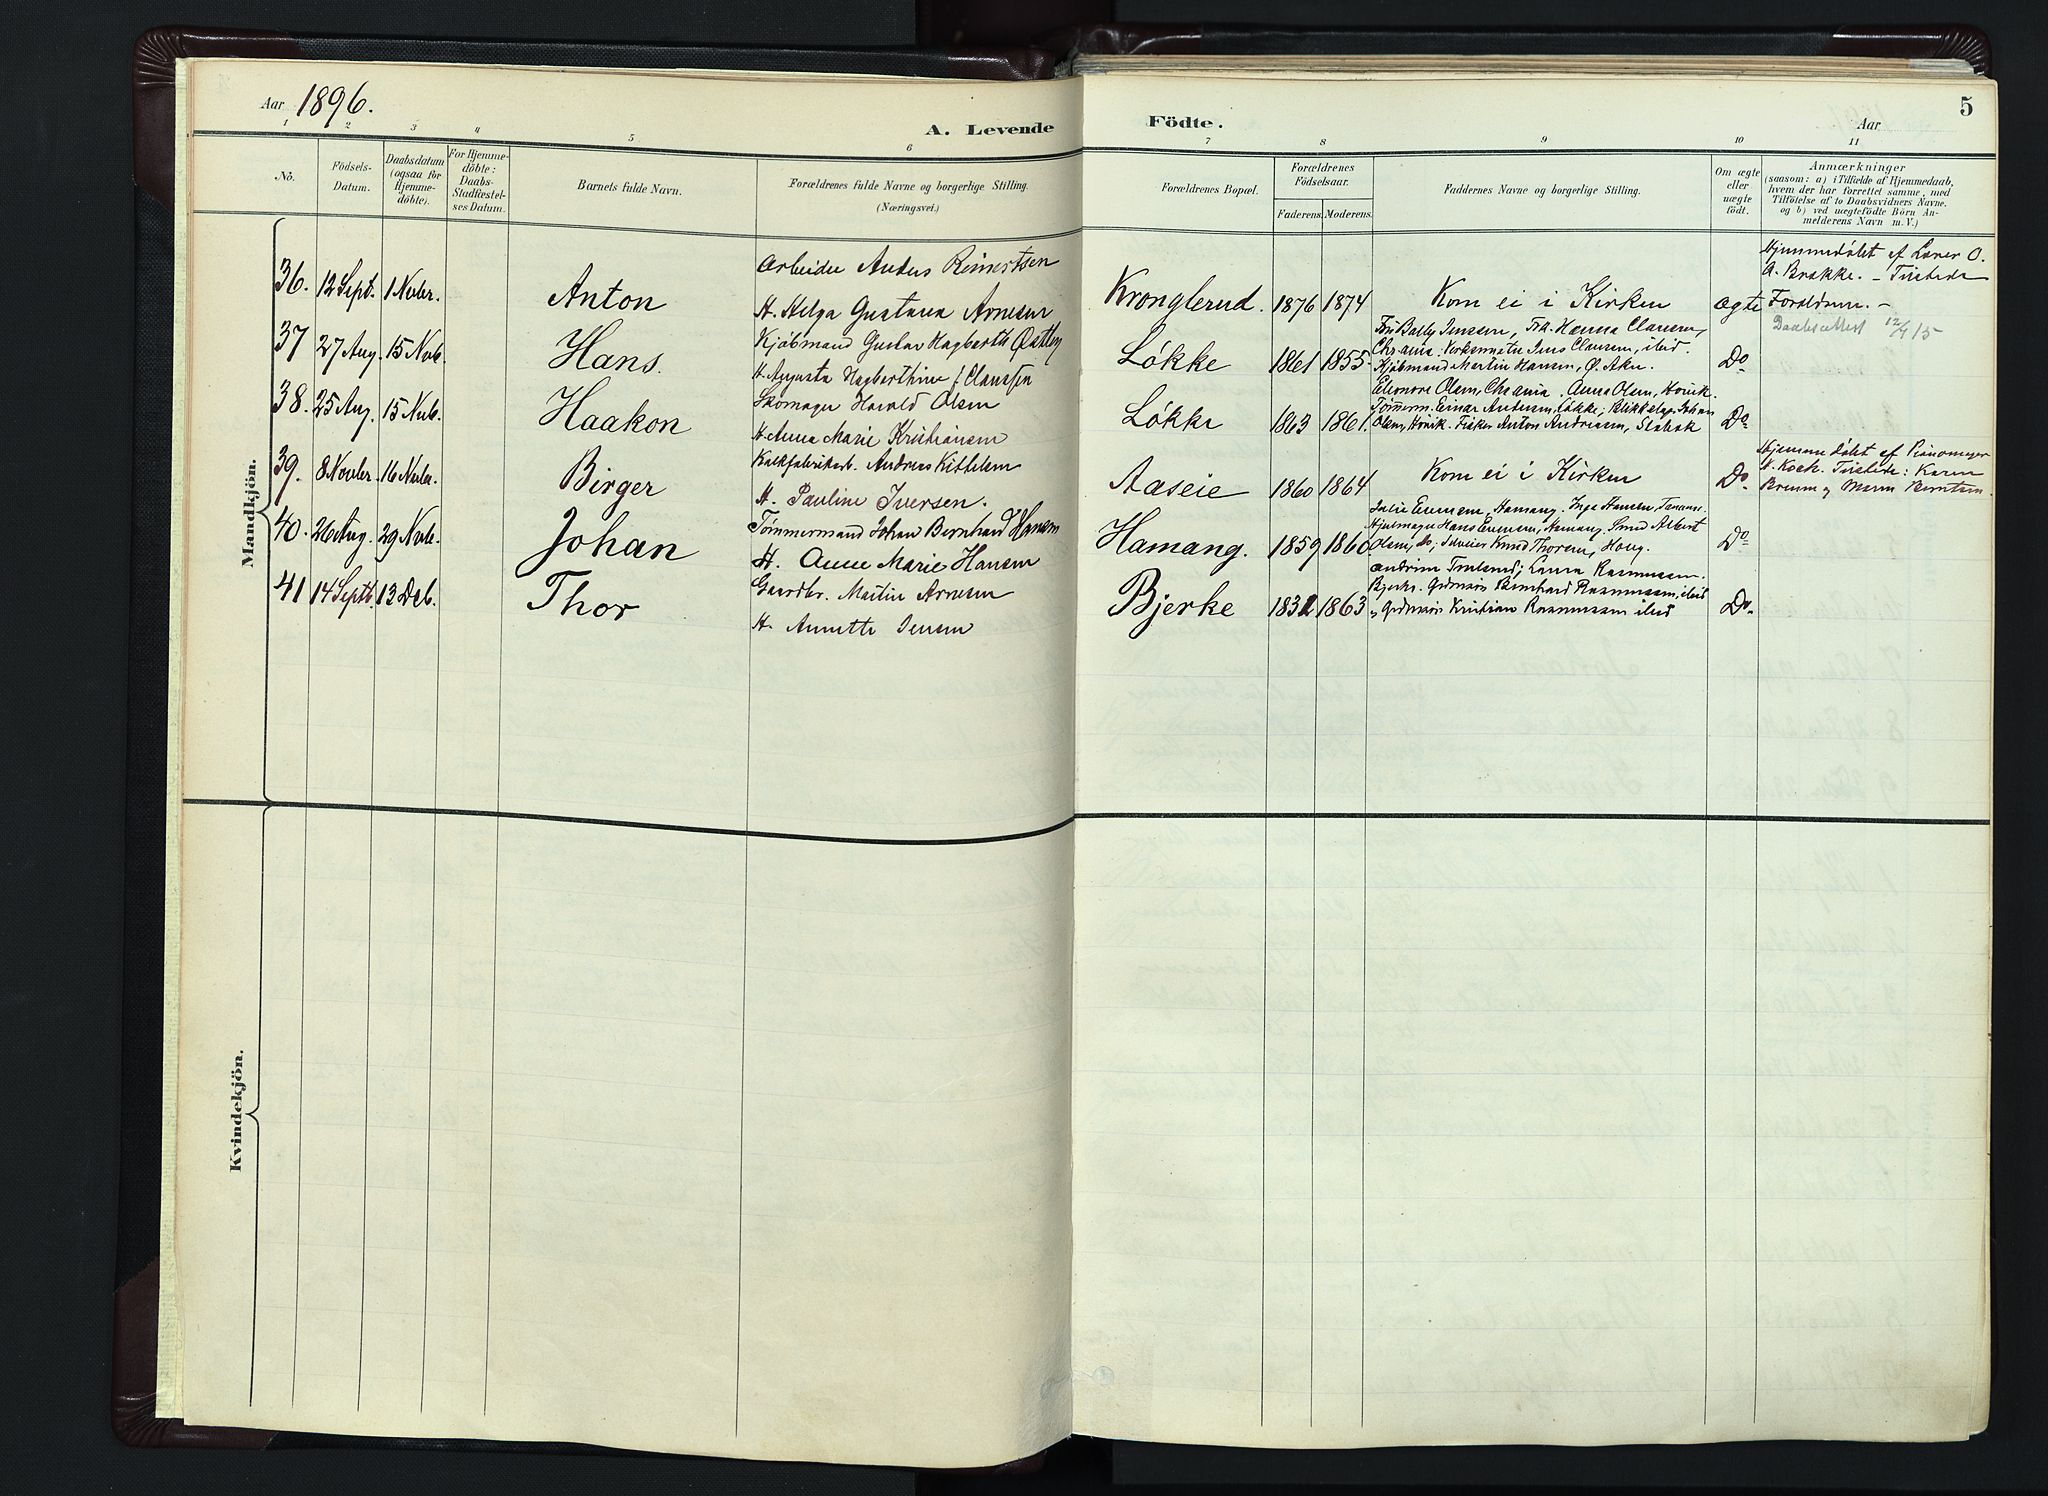 Aar 1896.
A. Levende Födte.
5
Aar
1 2 3 4 5 6 7 8 9 10 11
No.
Födsels-Datum.
Daabsdatum (ogsaa for Hjemme-döbte).
For Hjemme-döbte: Daabs-Stadfæstel-ses Datum.
Barnets fulde Navn.
Forældrenes fulde Navne og borgerlige Stilling.
(Næringsvei.)
Forældrenes Bopæl.
Forældrenes Födselsaar.
Faderens.
Moderens.
Faddernes Navne og borgerlige Stilling.
Om ægte eller uægte födt.
Anmærkninger
(saasom: a) i Tilfælde af Hjemmedaab,
hvem der har forrettet samme, med
Tilföielse af to Daabsvidners Navne.
og b) ved uægtefödte Börn An-
melderens Navn m. V.)
Mandkjön.
36. 12 Sept. 1 Novbr. Anton
Arbeider Anders Reinertsen
H. Helga Gustava Arnesen
Kronglerud. 1876 1874 Kom ei i Kirken ægte
Hjemmedøbt af Lærer O.
A. Brække. - Tilstede
Forældrene. -
37 27 Aug. 15 Nvb. Hans.
Kjøbmand Gustav Hagbarth Østby
H. Augusta Hagbarthine f. Claussen
Løkke 1861 1855
Fru Bolly Jenssen, Frk. Hanna Clausen,
Chrania: Verksmester Jens Clausen, ibid.
Kjøbmand Martin Hansen, Ø. Aker.
Do
Daabsattest 12/4 15
38. 25 Aug. 15 Nvb. Haakon
Skomager Harald Olsen
H. Anna Marie Kristiansen
Løkke 1863 1861.
Elionore Olsen, Chrania. Anna Olsen, Høvik.
Tømmerm. Einar Andersen, Løkke; Blikkslag. Johan
Olsen, Høvik. Fisker Anton Andersen, Stabæk
Do
39. 8 Novbr. 16 Nvbr. Birger
Kalkfabrikarb. Andreas Kittelsen
H. Pauline Iversen.
Aaseie 1860 1864 Kom ei i Kirken Do
Hjemmedøbt af
H. Koch. Tilstede: Karen
Breum og Maren Berntsen.
40. 26 Aug. 29 Nvb. Johan
Tømmermand Johan Bernhard Hansen
H. Anne Marie Hansen
Hamang. 1859 1860
Julie Evensen, Hamang. Inga Hansen, Tanum.
Hjulmager Hans Evensen, Hamang. Smed Albert
Olsen, do; Knud Thoresen, Haug.
Do
41 14 Septb. 13 Deb. Thor
Gaardbr. Martin Arnesen
H. Annette Jensen
Bjerke 1832 1863
Andrine Trulsrud; Laura Rasmussen.
Bjerke. Grdmairs Bernhard Rasmussen, ibid
og Grdmairs Kristian Rasmussen ibid
Do
Kvindekjön.